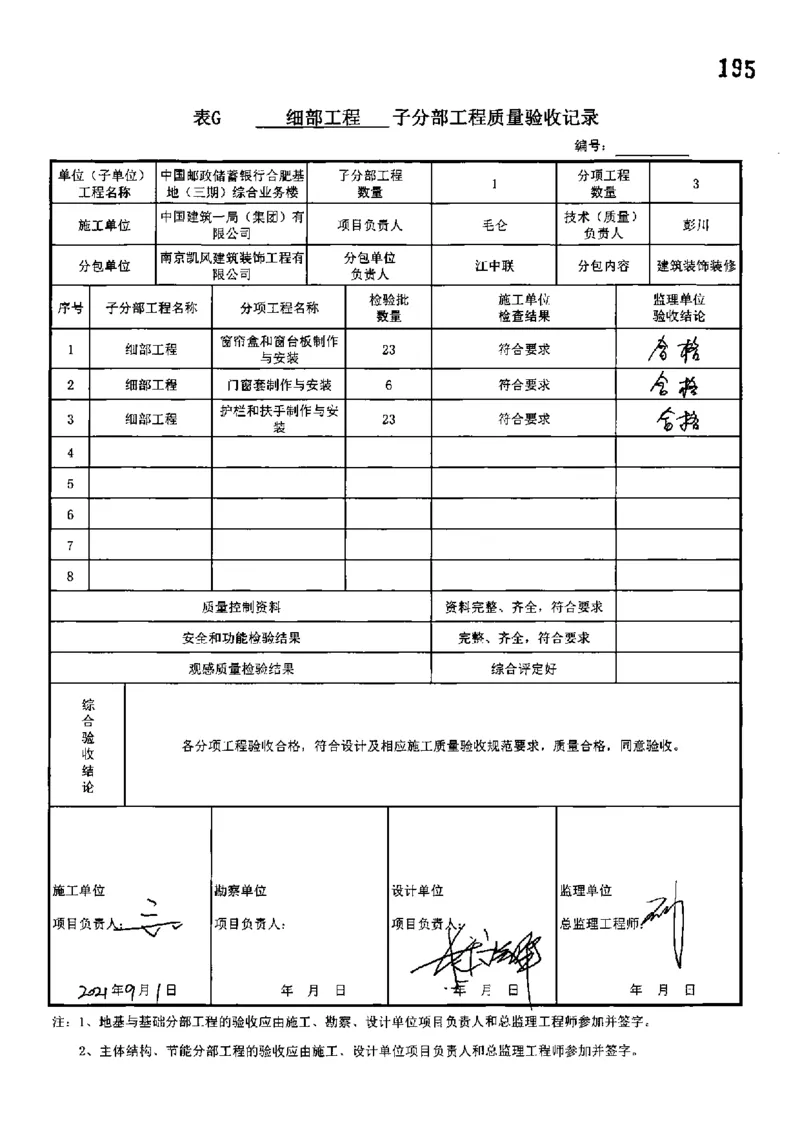 195
表G 细部工程 子分部工程质量验收记录
编号：
单位（子单位）工程名称 中国邮政储蓄银行合肥基地（三期）综合业务楼 子分部工程数量 1 分项工程数量 3
施工单位 中国建筑一局（集团）有限公司 项目负责人 毛仑 技术（质量）负责人 彭川
分包单位 南京凯风建筑装饰工程有限公司 分包单位负责人 江中联 分包内容 建筑装饰装修
序号 子分部工程名称 分项工程名称 检验批数量 施工单位检查结果 监理单位验收结论
1 细部工程 窗帘盒和窗台板制作与安装 23 符合要求 合格
2 细部工程 门窗套制作与安装 6 符合要求 合格
3 细部工程 护栏和扶手制作与安装 23 符合要求 合格
4
5
6
7
8
质量控制资料 资料完整、齐全，符合要求
安全和功能检验结果 完整、齐全，符合要求
观感质量检验结果 综合评定好
综合验收结论 各分项工程验收合格，符合设计及相应施工质量验收规范要求，质量合格，同意验收。
施工单位 勘察单位 设计单位 监理单位
项目负责人： 项目负责人： 项目负责人： 总监理工程师：
2021年9月1日 年 月 日 年 月 日 年 月 日
注：1、地基与基础分部工程的验收应由施工、勘察、设计单位项目负责人和总监理工程师参加并签字。
2、主体结构、节能分部工程的验收应由施工、设计单位项目负责人和总监理工程师参加并签字。